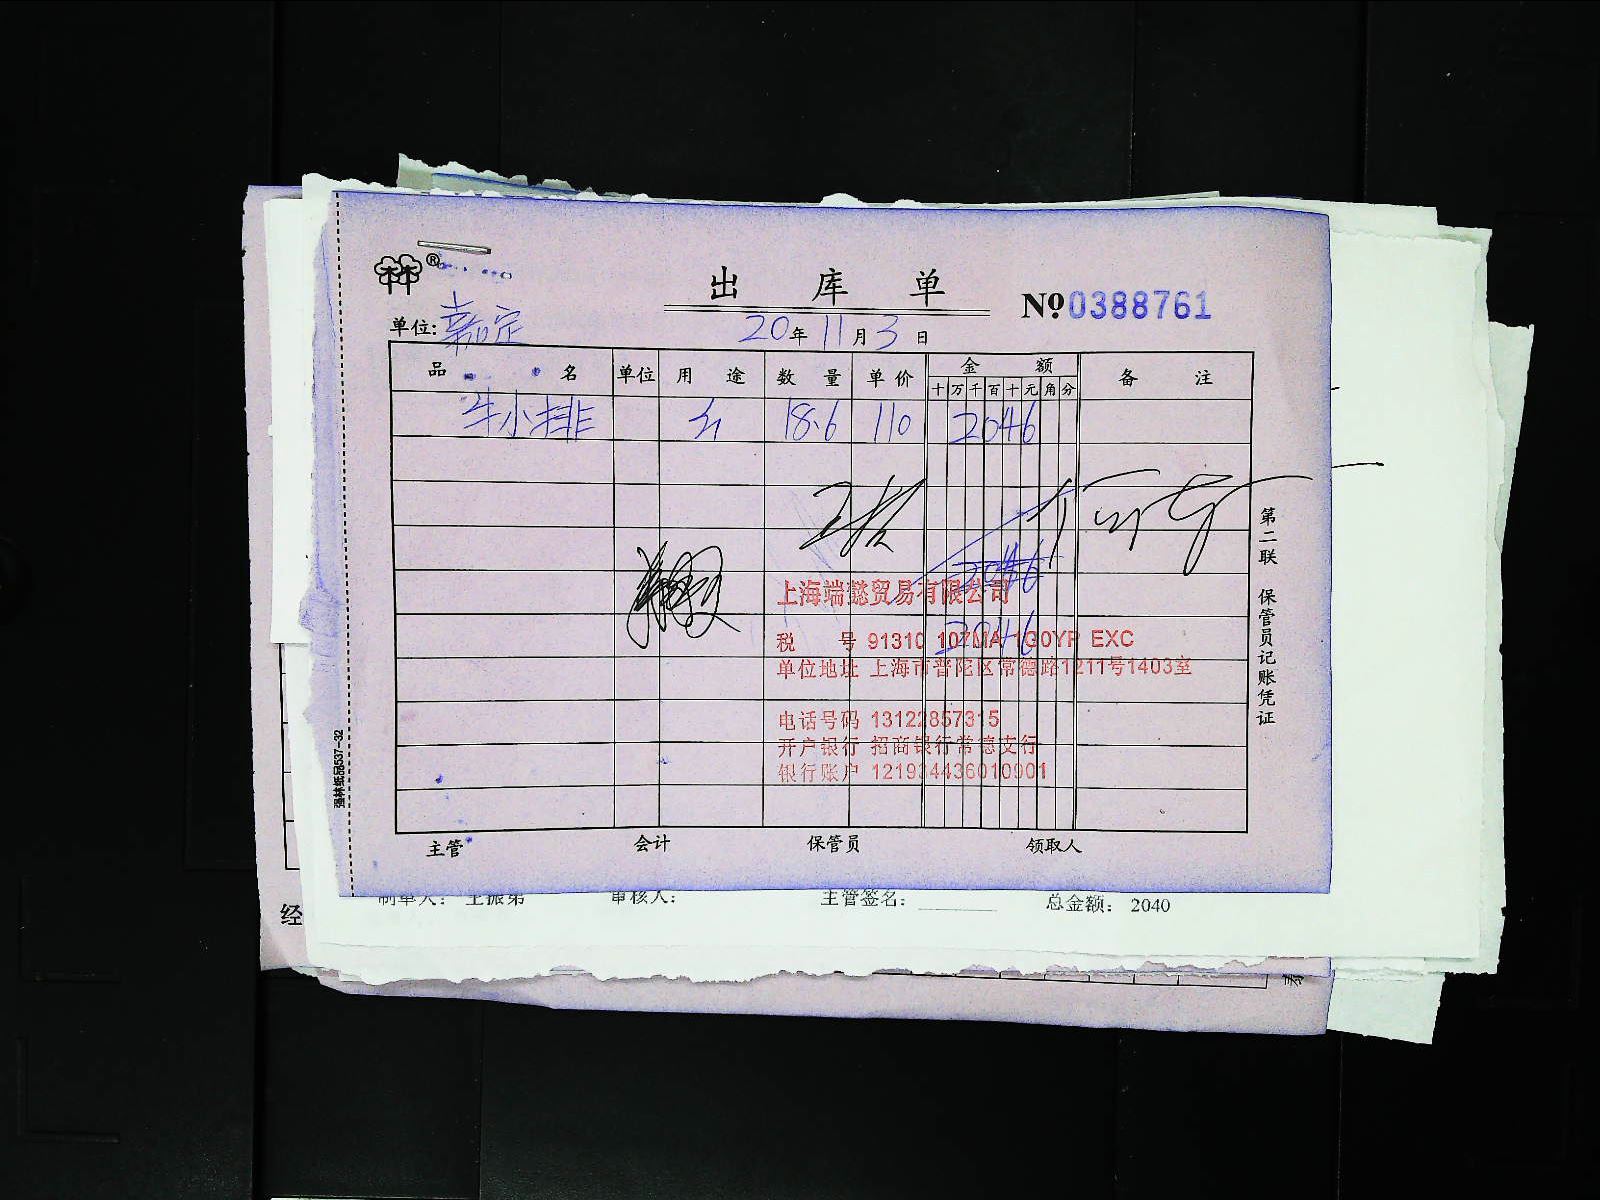 出 库 单
№0388761
单位: 嘉定
20年11月3日
品 名 单位 用 途 数 量 单价 金 额 备 注
十 万 千 百 十 元 角 分
牛小排 18.6 110 2046
2046
上海端懿贸易有限公司
2046
税 号 91310 107MA 1G0YP EXC
单位地址 上海市普陀区常德路1211号1403室
电话号码 13122857315
开户银行 招商银行常德支行
银行账户 121934436010901
第二联 保管员记账凭证
强林纸品537-32
主管 会计 保管员 领取人
制单人: 王振第 审核人: 主管签名: 总金额: 2040
经